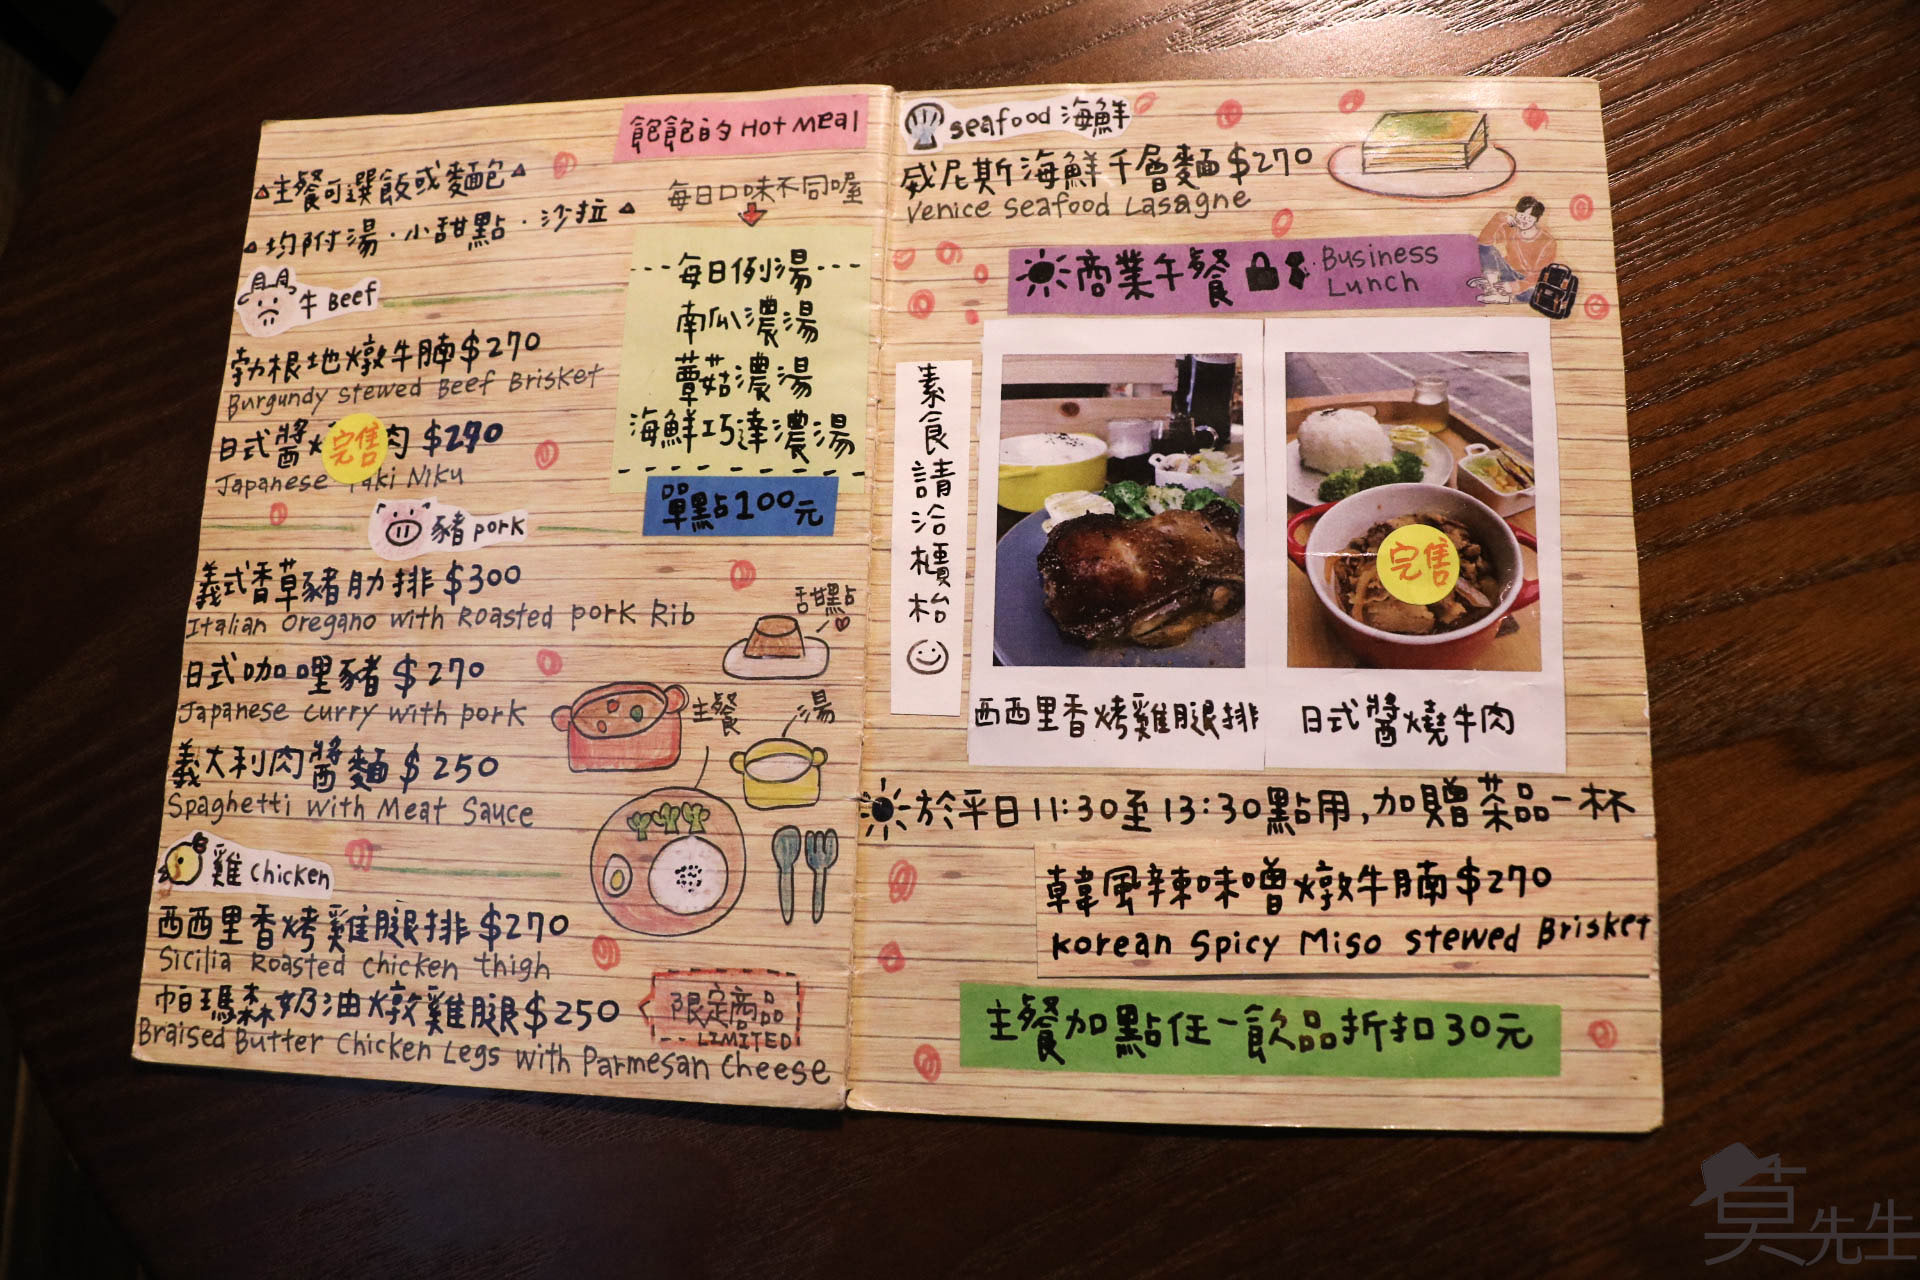 飽飽的 Hot Meal
▵主餐可選飯或麵包▵
▵均附湯·小甜點·沙拉▵
每日口味不同喔
牛 Beef
勃根地燉牛腩 $270
Burgundy Stewed Beef Brisket
日式醬 肉 $290
完售
Japanese Yaki Niku
---每日例湯---
南瓜濃湯
蘑菇濃湯
海鮮巧達濃湯
單點100元
豬 pork
義式香草豬肋排 $300
Italian Oregano with Roasted pork Rib
日式咖哩豬 $270
Japanese curry with pork
義大利肉醬麵 $250
Spaghetti with Meat Sauce
甜點
主餐
湯
雞 chicken
西西里香烤雞腿排 $270
Sicilia Roasted chicken thigh
帕瑪森奶油燉雞腿 $250
Braised Butter Chicken Legs with Parmesan Cheese
限定商品
LIMITED
seafood 海鮮
威尼斯海鮮千層麵 $270
Venice Seafood Lasagne
商業午餐
Business
Lunch
素食請洽櫃枱
完售
西西里香烤雞腿排
日式醬燒牛肉
於平日11:30至13:30點用,加贈茶品一杯
韓風辣味噌燉牛腩 $270
Korean Spicy Miso Stewed Brisket
主餐加點任一飲品折扣30元
莫先生